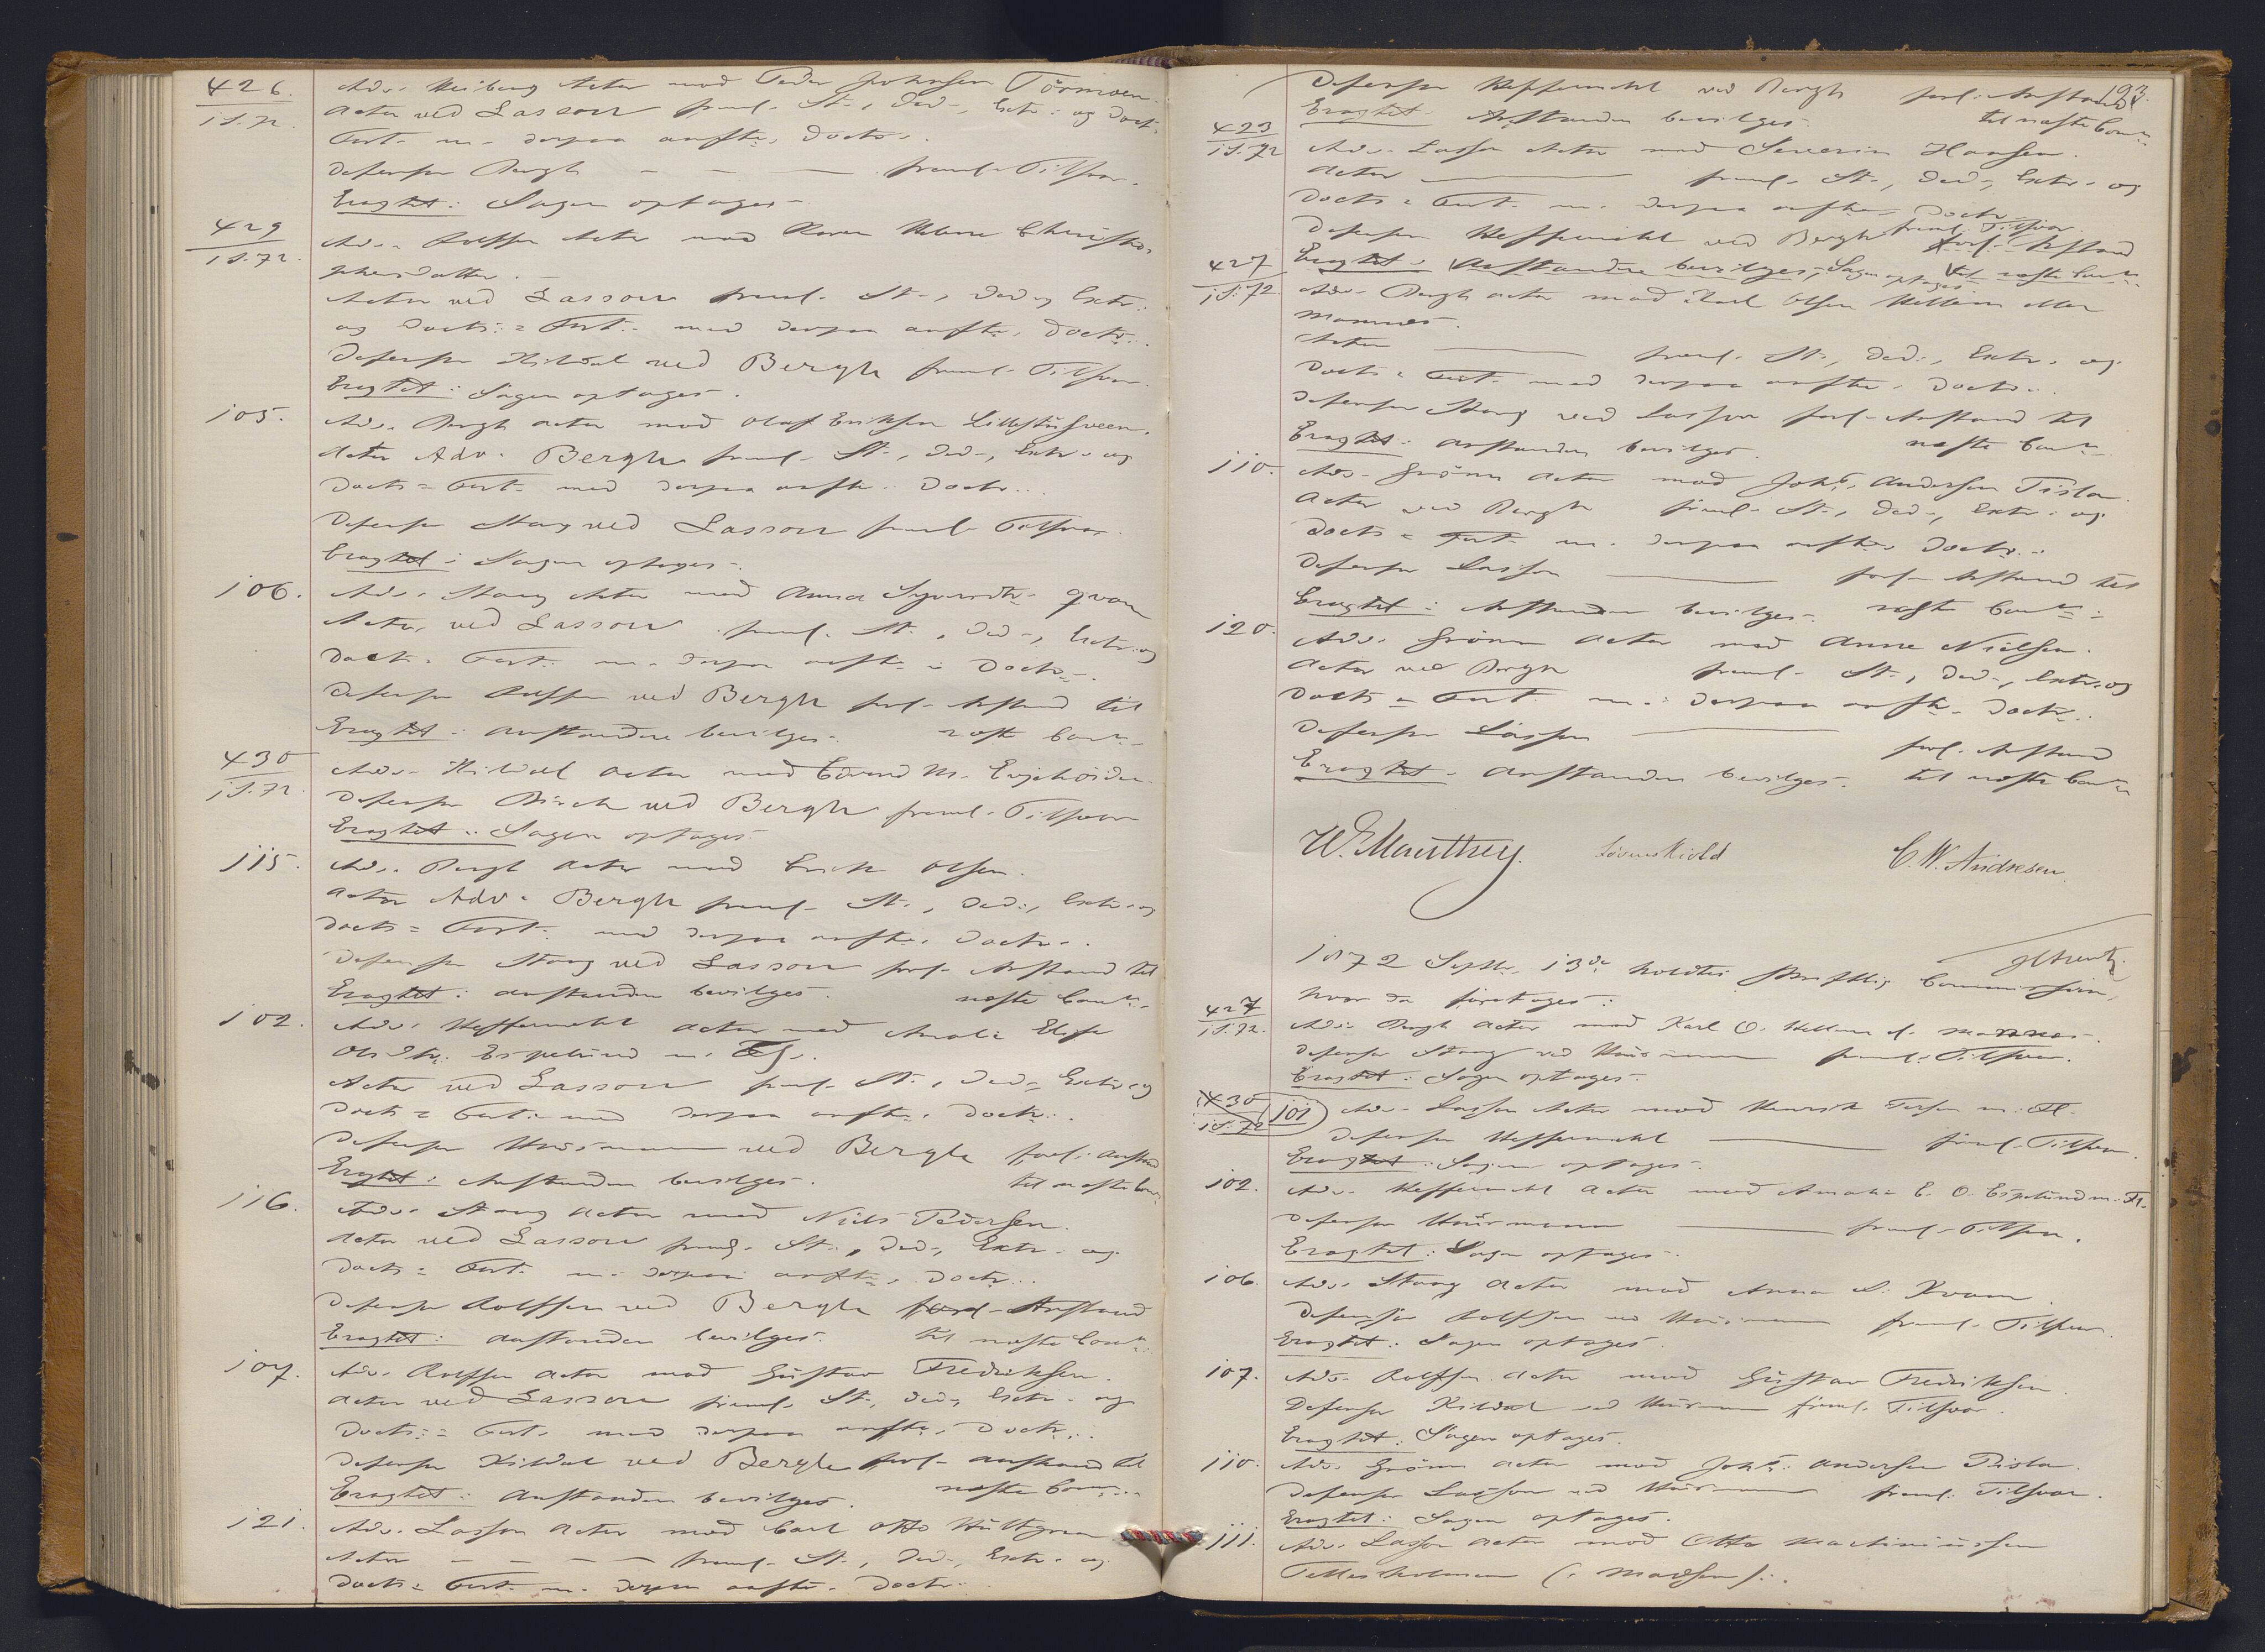 426.
1 S. 72
Adv. Heiberg Actor mod Peder Johnsen Törmoen.
Actor ved Lasson freml. St., Ded., Extr. og Doct.
Cert. m. derpaa anfte. Doctr.
Defensor Bergh — — — freml. Tilsvar.
Eragtet: Sagen optages.
429
1 S. 72.
Adv. Rolffsen Actor mod Karen Helene Christo-
phersdatter.
Actor ved Lasson freml. St., Ded. og Extr.
og Docts. = Cert. med derpaa anfte. Doctr.
Defensor Kildal ved Bergh freml. Tilsvar.
Eragtet: Sagen optages.
105.
Adv. Bergh Actor mod Olaf Eriksen Lillestusveen.
Actor Adv. Bergh freml. St., Ded., Extr. og
Docts = Cert. med derpaa anfte. Doctr.
Defensor Stang ved Lasson freml. Tilsvar.
Eragtet: Sagen optages.
106.
Adv. Stang Actor mod Anna Syverdtr. Qvam
Actor ved Lasson freml. St., Ded., Extr. og
Docts. Cert. m. derpaa anfte. Doctr.
Defensor Rolffsen ved Bergh forl. Anstand til
Eragtet: Anstanden bevilges. næste Comn.
430
1 S. 72.
Adv. Kildal Actor mod Edvard M.
Defensor Birch ved Bergh freml. Tilsvar
Eragtet: Sagen optages.
115.
Adv. Bergh Actor mod Erik Olsen.
Actor Adv. Bergh freml. St., Ded., Extr. og
Docts = Cert. med derpaa anfte. Doctr.
Defensor Stang ved Lasson forl. Anstand til
Eragtet: Anstanden bevilges. næste Comn.
102.
Adv. Heffermehl Actor mod Amalie Elise
Olsdtr. Espelund m. Fl.
Actor ved Lasson freml. St., Ded., Extr. og
Docts = Cert. med derpaa anfte. Doctr.
Defensor ved Bergh forl. Anstand
Eragtet: Anstanden bevilges. til næste Comn.
116.
Adv. Stang Actor mod Niels Pedersen.
Actor ved Lasson freml. St., Ded., Extr. og
Docts = Cert. m. derpaa anfte. Doctr.
Defensor Rolffsen ved Bergh forl. Anstand
Eragtet: Anstanden bevilges. til næste Comn.
107.
Adv. Rolffsen Actor mod Gustav Fredriksen.
Actor ved Lasson freml. St., Ded., Extr. og
Docts. = Cert. med derpaa anfte. Doctr.
Defensor Kildal ved Bergh forl. Anstand til
Eragtet: Anstanden bevilges. næste Comn.
121.
Adv. Lasson Actor mod Carl Otto Hultgren
Actor — — — — freml. St., Ded., Extr. og
Docts = Cert. m. derpaa anfte. Doctr.
193.
Defensor Heffermehl ved Bergh forl. Anstand
Eragtet. Anstanden bevilges. til næste Comn.
423
1 S. 72
Adv. Lasson Actor mod Severin Hansen.
Actor — freml. St., Ded., Extr. og
Docts = Cert. m. derpaa anfte. Doctr.
Defensor Heffermehl ved Bergh freml. Tilsvar. forl. Anstand
Eragtet: Anstanden bevilges, Sagen optages til næste Comn.
427
1 S. 72.
Adv. Bergh Actor mod Karl Olsen Hellum eller
Monnes.
Actor — freml. St., Ded., Extr. og
Docts = Cert. med derpaa anfte. Doctr.
Defensor Stang ved Lasson forl. Anstand til
Eragtet: Anstanden bevilges. næste Comn.
110.
Adv. Grönn Actor mod Johs. Andersen Tisla.
Actor ved Bergh freml. St., Ded., Extr. og
Docts = Cert. m. derpaa anfte. Doctr.
Defensor Lasson — forl. Anstand til
Eragtet: Anstanden bevilges. næste Comn.
120.
Adv. Grönn Actor mod Anne Nielsen.
Actor ved Bergh freml. St., Ded., Extr. og
Docts = Cert. m. derpaa anfte. Doctr.
Defensor Lasson — forl. Anstand
Eragtet. Anstanden bevilges. til næste Comn.
Løvenskiold C. W. Andresen.
1872 Septbr. 13de holdtes Skriftlig Commission,
hvor da foretages:
427
1 S. 72.
Adv. Bergh Actor mod Karl O. Hellum el. Monnes.
Defensor Stang ved freml. Tilsvar.
Eragtet: Sagen optages.
430
1 S. 72
101
Adv. Lasson Actor mod Henrik m. Fl.
Defensor Heffermehl — freml. Tilsvar.
Eragtet: Sagen optages.
102.
Adv. Heffermehl Actor mod Amalie E. O. Espelund m. Fl.
Defensor — freml. Tilsvar.
Eragtet: Sagen optages.
106.
Adv. Stang Actor mod Anna S. Kvam
Defensor Rolffsen ved freml. Tilsvar.
Eragtet: Sagen optages.
107.
Adv. Rolffsen Actor mod Gustav Fredriksen.
Defensor Kildal ved freml. Tilsvar.
Eragtet: Sagen optages.
110.
Adv. Grönn Actor mod Johs. Andersen Tisla.
Defensor Lasson ved freml. Tilsvar.
Eragtet: Sagen optages.
111.
Adv. Lasson Actor mod Otto Martiniussen
(: Madsen :).